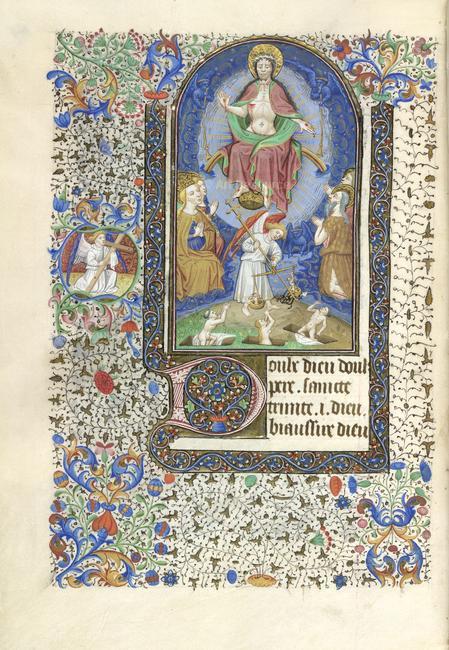 Doulz dieu doulz
pere . saincte
trinite . i . dieu .
biausire dieu